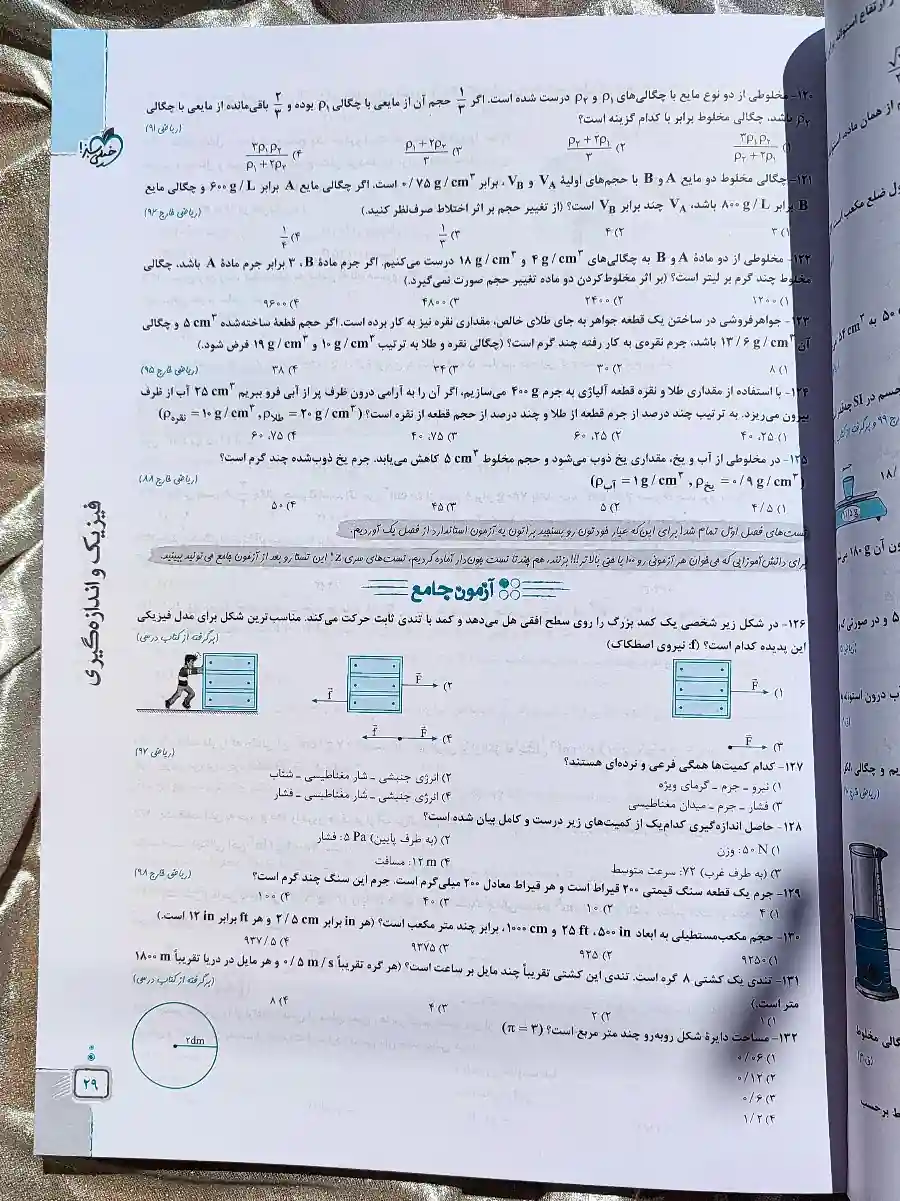 ۱۲۰- مخلوطی از دو نوع مایع با چگالی‌های ρ۱ و ρ۲ درست شده است. اگر ۱/۳ حجم آن از مایعی با چگالی ρ۱ بوده و ۲/۳ باقی‌مانده از مایعی با چگالی
ρ۲ باشد، چگالی مخلوط برابر با کدام گزینه است؟ (ریاضی ۹۱)
۱) ۳ρ۱ρ۲ / ρ۲+۲ρ۱ ۲) ρ۲+۲ρ۱ / ۳ ۳) ρ۱+۲ρ۲ / ۳ ۴) ۳ρ۱ρ۲ / ρ۱+۲ρ۲
۱۲۱- چگالی مخلوط دو مایع A و B با حجم‌های اولیهٔ VA و VB، برابر ۰/۷۵ g/cm³ است. اگر چگالی مایع A برابر ۶۰۰ g/L و چگالی مایع
B برابر ۸۰۰ g/L باشد، VA چند برابر VB است؟ (از تغییر حجم بر اثر اختلاط صرف‌نظر کنید.) (ریاضی خارج ۹۲)
۱) ۳ ۲) ۴ ۳) ۱/۳ ۴) ۱/۴
۱۲۲- مخلوطی از دو مادهٔ A و B به چگالی‌های ۴ g/cm³ و ۱۸ g/cm³ درست می‌کنیم. اگر جرم مادهٔ B، ۳ برابر جرم مادهٔ A باشد، چگالی
مخلوط چند گرم بر لیتر است؟ (بر اثر مخلوط‌کردن دو ماده تغییر حجم صورت نمی‌گیرد.)
۱) ۱۲۰۰ ۲) ۲۴۰۰ ۳) ۴۸۰۰ ۴) ۹۶۰۰
۱۲۳- جواهرفروشی در ساختن یک قطعه جواهر به جای طلای خالص، مقداری نقره نیز به کار برده است. اگر حجم قطعهٔ ساخته‌شده ۵ cm³ و چگالی
آن ۱۳/۶ g/cm³ باشد، جرم نقره‌ی به کار رفته چند گرم است؟ (چگالی نقره و طلا به ترتیب ۱۰ g/cm³ و ۱۹ g/cm³ فرض شود.)
۱) ۸ ۲) ۳۰ ۳) ۳۴ ۴) ۳۸ (ریاضی خارج ۹۵)
۱۲۴- با استفاده از مقداری طلا و نقره قطعه آلیاژی به جرم ۴۰۰ g می‌سازیم. اگر آن را به آرامی درون ظرف پر از آبی فرو ببریم ۲۵ cm³ آب از ظرف
بیرون می‌ریزد. به ترتیب چند درصد از جرم قطعه از طلا و چند درصد از حجم قطعه از نقره است؟ (ρطلا = ۲۰ g/cm³، ρنقره = ۱۰ g/cm³)
۱) ۲۵، ۴۰ ۲) ۲۵، ۶۰ ۳) ۷۵، ۴۰ ۴) ۷۵، ۶۰
۱۲۵- در مخلوطی از آب و یخ، مقداری یخ ذوب می‌شود و حجم مخلوط ۵ cm³ کاهش می‌یابد. جرم یخ ذوب‌شده چند گرم است؟
(ρآب = ۱ g/cm³، ρیخ = ۰/۹ g/cm³) (ریاضی خارج ۸۸)
۱) ۴/۵ ۲) ۵ ۳) ۴۵ ۴) ۵۰
تست‌های فصل اول تمام شد! برای این‌که عیار خودتون رو بسنجید براتون یه آزمون استاندارد از فصل یک آوردیم.
برای دانش‌آموزایی که می‌خوان هر آزمونی رو ۱۰۰ یا حتی بالاتر!!! بزنند، هم چندتا تست جون‌دار آماده کردیم، تست‌های سری Z! این تستا رو بعد از آزمون جامع می‌تونید ببینید.
آزمون جامع
۱۲۶- در شکل زیر شخصی یک کمد بزرگ را روی سطح افقی هل می‌دهد و کمد با تندی ثابت حرکت می‌کند. مناسب‌ترین شکل برای مدل فیزیکی
این پدیده کدام است؟ (f: نیروی اصطکاک) (برگرفته از کتاب درسی)
۱) F ۲) F f
۳) F ۴) F f
۱۲۷- کدام کمیت‌ها همگی فرعی و نرده‌ای هستند؟ (ریاضی ۹۷)
۱) نیرو ـ جرم ـ گرمای ویژه ۲) انرژی جنبشی ـ شار مغناطیسی ـ شتاب
۳) فشار ـ جرم ـ میدان مغناطیسی ۴) انرژی جنبشی ـ شار مغناطیسی ـ فشار
۱۲۸- حاصل اندازه‌گیری کدام‌یک از کمیت‌های زیر درست و کامل بیان شده است؟
۱) ۵۰ N: وزن ۲) (به طرف پایین) ۵ Pa: فشار
۳) (به طرف غرب) ۷۲: سرعت متوسط ۴) ۱۲ m: مسافت
۱۲۹- جرم یک قطعه سنگ قیمتی ۲۰۰ قیراط است و هر قیراط معادل ۲۰۰ میلی‌گرم است. جرم این سنگ چند گرم است؟ (ریاضی خارج ۹۸)
۱) ۴ ۲) ۱۰ ۳) ۴۰ ۴) ۱۰۰
۱۳۰- حجم مکعب‌مستطیلی به ابعاد ۵۰۰ in، ۲۵ ft و ۱۰۰۰ cm، برابر چند متر مکعب است؟ (هر in برابر ۲/۵ cm و هر ft برابر ۱۲ in است.)
۱) ۹۲۵۰ ۲) ۹۲۵ ۳) ۹۳۷۵ ۴) ۹۳۷/۵
۱۳۱- تندی یک کشتی ۸ گره است. تندی این کشتی تقریباً چند مایل بر ساعت است؟ (هر گره تقریباً ۰/۵ m/s و هر مایل در دریا تقریباً ۱۸۰۰ m
متر است.) (برگرفته از کتاب درسی)
۱) ۱ ۲) ۲ ۳) ۴ ۴) ۸
۱۳۲- مساحت دایرهٔ شکل روبه‌رو چند متر مربع است؟ (π = ۳)
۱) ۰/۰۶
۲) ۰/۱۲
۳) ۰/۶
۴) ۱/۲
۲dm
فیزیک و اندازه‌گیری
۲۹
خیلی سبز